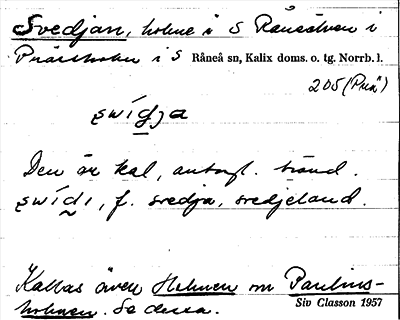 Svedjan, holme i S Råneälven i
Prästholm i S Råneå sn, Kalix doms. o. tg. Norrb. l.
205 (Prä)
swídja
Den är kal, antagl. bränd.
swídı, f. svedja, svedjeland.
Kallas även Holmen om Paulins-
holmen. Se dessa.
Siv Classon 1957